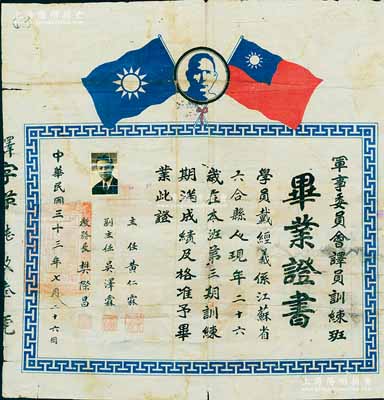 軍事委員會譯員訓練班
畢業證書
學員戴經義係江蘇省
六合縣人現年二十六
歲在本班第三期訓練
期滿成績及格准予畢
業此證
主任 黃仁霖
副主任 吳澤霖
教務長 樊際昌
中華民國三十三年七月二十六日
譯字第